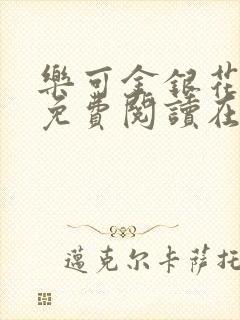 樂可金銀花
免費閱讀在
邁克尔卡萨托